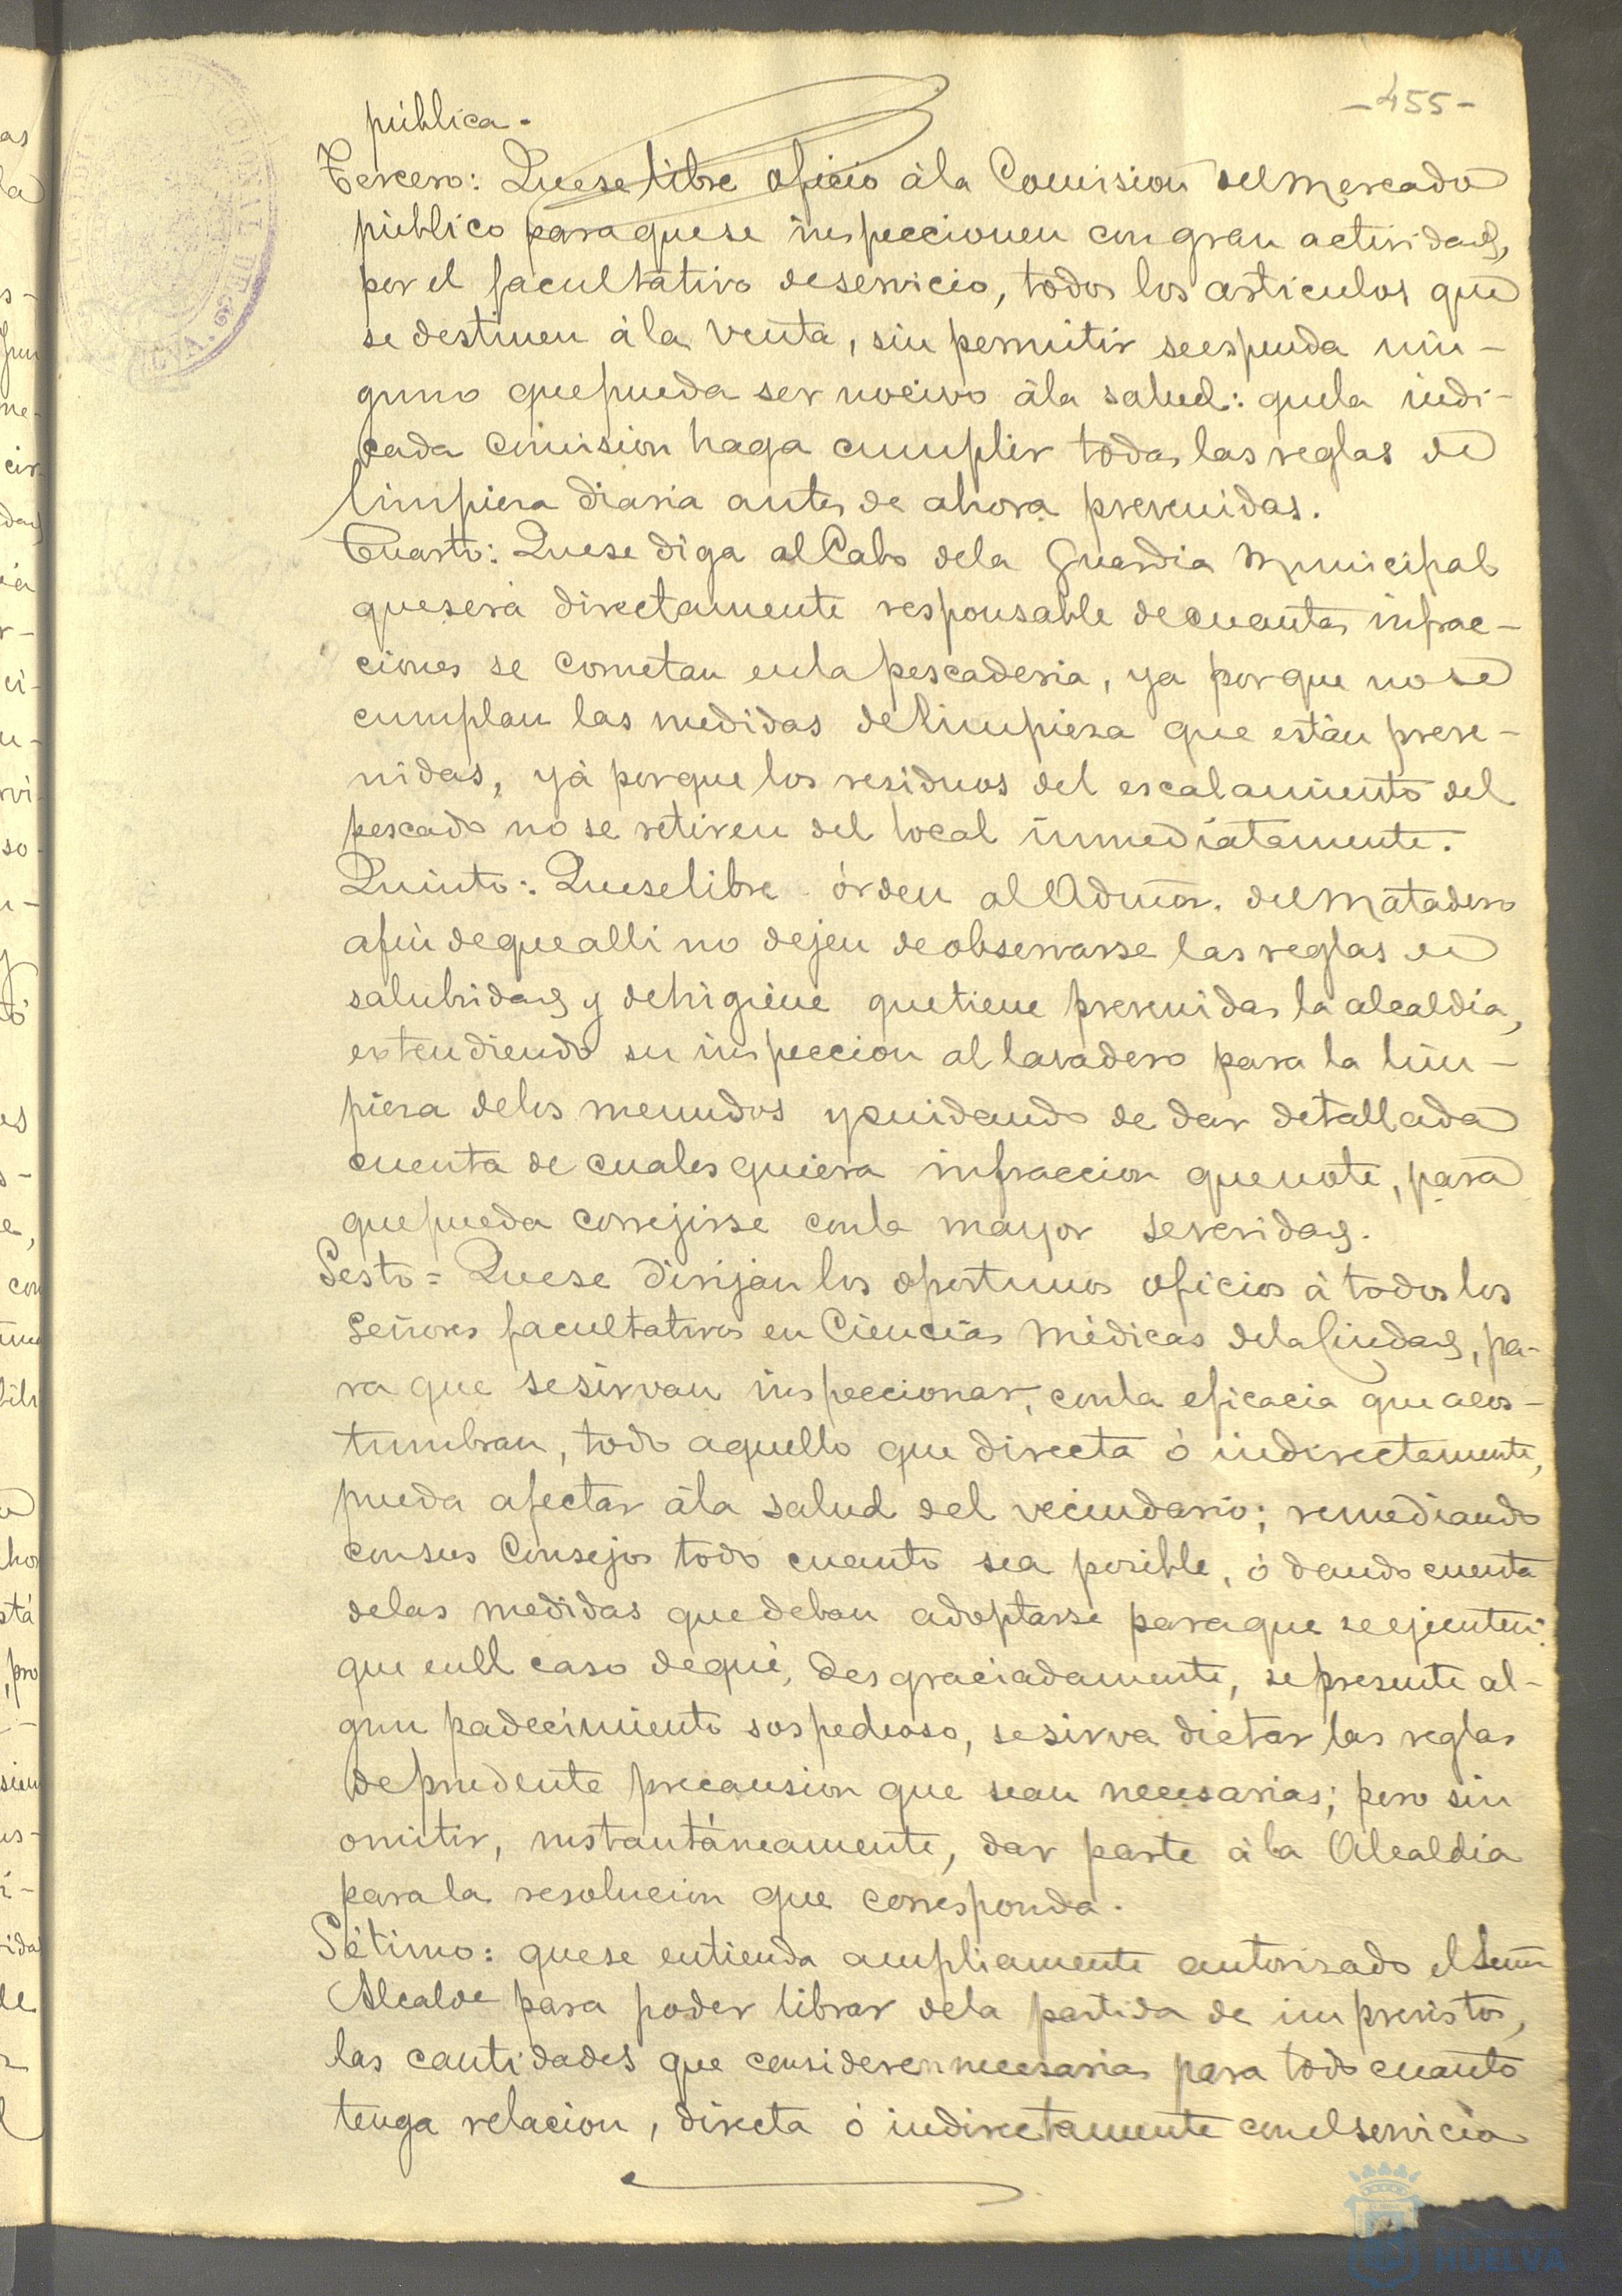 -455-
pública.
Tercero: Que se libre oficio á la Comision del Mercado
público para que se inspeccionen con gran actividad,
por el facultativo de servicio, todos los articulos que
se destinen á la venta, sin permitir se espenda nin-
guno que pueda ser nocivo á la salud: que la indi-
cada comision haga cumplir todas las reglas de
limpieza diaria antes de ahora prevenidas.
Cuarto: Que se diga al Cabo de la Guardia Municipal
que será directamente responsable de cuantas infrac-
ciones se cometan en la pescaderia, ya porque no se
cumplan las medidas de limpieza que están preve-
nidas, yá porque los residuos del escalamiento del
pescado no se retiren del local inmediatamente.
Quinto: Que se libre órden al Admor. del Matadero
afin de que alli no dejen de observarse las reglas de
salubridad y de higiene que tiene prevenidas la alcaldia,
extendiendo su inspeccion al lavadero para la lim-
pieza de los menudos y cuidando de dar detallada
cuenta de cualesquiera infraccion que note, para
que pueda correjirse con la mayor severidad.
Sesto = Que se dirijan los oportunos oficios á todos los
Señores facultativos en Ciencias Médicas de la Ciudad, pa-
ra que se sirvan inspeccionar, con la eficacia que acos-
tumbran, todo aquello que directa ó indirectamente,
pueda afectar á la salud del vecindario; remediando
con sus Consejos todo cuanto sea posible, ó dando cuenta
de las medidas que deban adoptarse para que se ejecuten:
que en el caso de que, desgraciadamente, se presente al-
gun padecimiento sospechoso, se sirva dictar las reglas
de prudente precausion que sean necesarias; pero sin
omitir, instantáneamente, dar parte á la Alcaldia
para la resolucion que corresponda.
Sétimo: que se entienda ampliamente autorizado el Señor
Alcalde para poder librar de la partida de imprevistos,
las cantidades que consideren necesarias para todo cuanto
tenga relacion, directa ó indirectamente con el servicio
HUELVA